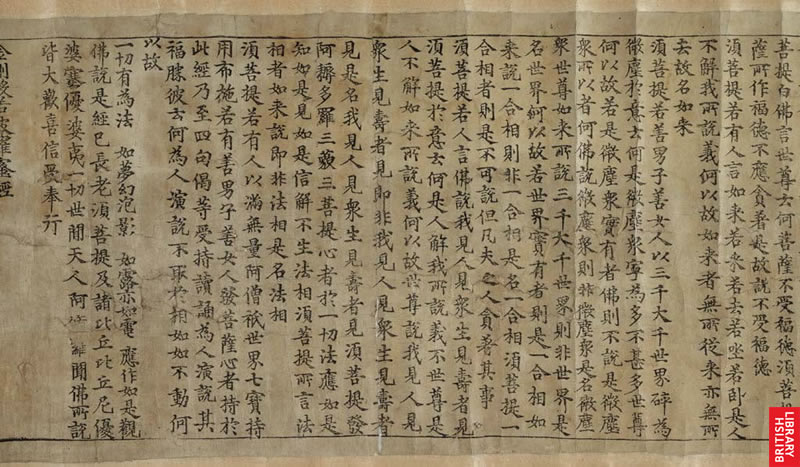 菩提白佛言世尊云何菩薩不受福德須菩
薩所作福德不應貪著是故說不受福德
須菩提若有人言如来若来若去若坐若卧是人
不解我所說義何以故如来者無所從来亦無所
去故名如来
須菩提若善男子善女人以三千大千世界碎為
微塵於意云何是微塵衆寧為多不甚多世尊
何以故若是微塵衆實有者佛則不說是微塵
衆所以者何佛說微塵衆則非微塵衆是名微塵
衆世尊如来所說三千大千世界則非世界是
名世界何以故若世界實有者則是一合相如
来說一合相則非一合相是名一合相須菩提一
合相者則是不可說但凡夫之人貪著其事
須菩提若人言佛說我見人見衆生見壽者見
須菩提於意云何是人解我所說義不世尊是
人不解如来所說義何以故世尊說我見人見
衆生見壽者見即非我見人見衆生見壽者
見是名我見人見衆生見壽者見須菩提發
阿耨多羅三藐三菩提心者於一切法應如是
知如是見如是信解不生法相須菩提所言法
相者如来說即非法相是名法相
須菩提若有人以滿無量阿僧祇世界七寶持
用布施若有善男子善女人發菩薩心者持於
此經乃至四句偈等受持讀誦為人演說其
福勝彼云何為人演說不取於相如如不動何
以故
一切有為法 如夢幻泡影 如露亦如電 應作如是觀
佛說是經已長老須菩提及諸比丘比丘尼優
婆塞優婆夷一切世間天人阿羅聞佛所說
皆大歡喜信受奉行
金剛般若波羅蜜經
BRITISH
LIBRARY